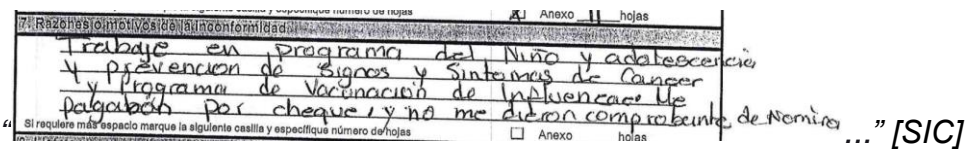 siguiente casilla y especifique número de hojas Anexo 11 hojas
7. Razones o motivos de la inconformidad
Trabaje en programa del Niño y adolescencia
y prevencion de Signos y Sintomas de Cancer
y Programa de Vacunacion de Influencac Me
pagaban por cheque, y no me dieron comprobante de Nomina
“ Si requiere más espacio marque la siguiente casilla y especifique número de hojas Anexo hojas ...” [SIC]